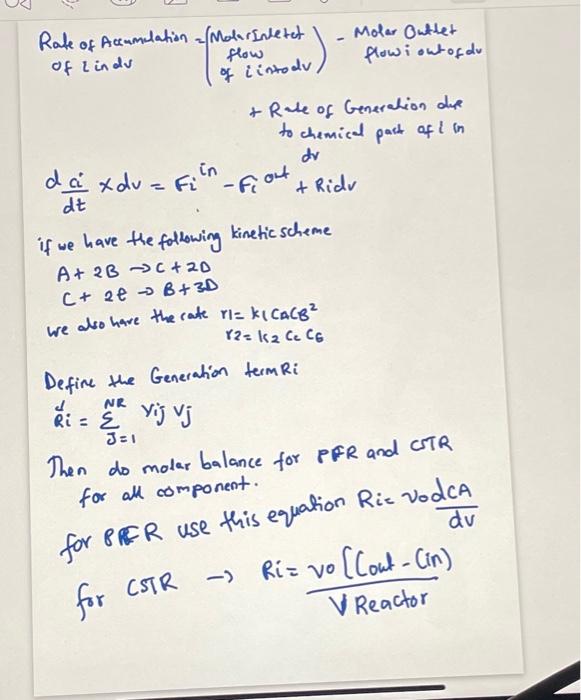 Rate of Accumulation = (Molar Inletot ) - Molar Outlet
of i in dv flow flow i out of dv
of i into dv
+ Rate of Generation due
to chemical pack of i in
dv
d ci/dt x dv = Fi^in - Fi^out + Ridv
if we have the following kinetic scheme
A + 2B → C + 2D
C + 2E → B + 3D
we also have the rate r1 = k1 CACB²
r2 = k2 Cc CE
Define the Generation term Ri
Ri = Σ Vij Vj
NR
J=1
Then do molar balance for PFR and CSTR
for all component.
for PFR use this equation Ri = Vo dCA/dv
for CSTR → Ri = vo [Cout - Cin)
V Reactor